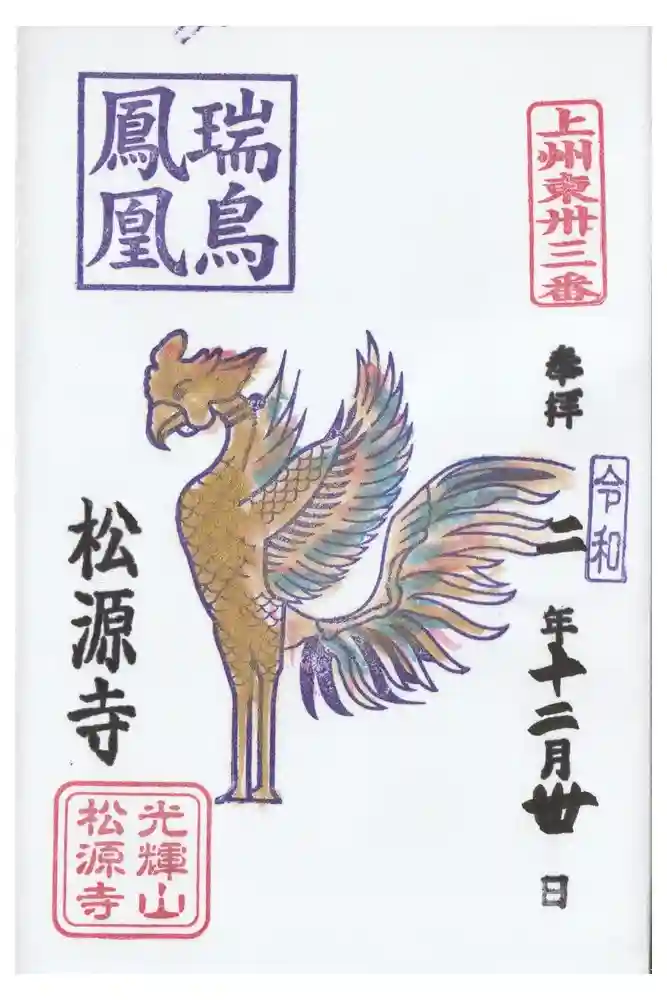 上州東卅三番
奉拝
令和
二年十二月丗日
瑞鳥
鳳凰
松源寺
光輝山
松源寺